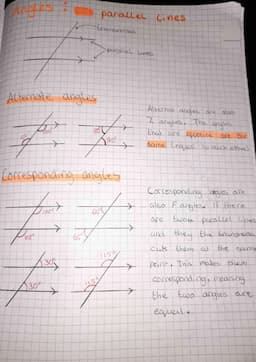 Angles : parallel Lines
transversal
parallel lines
Alternate angles
Alternate angles are also
Z angles. The angles
that are opposite are the
same (equal to each other)
Corresponding angles
Corresponding angles are
also F angles. if there
are two parallel lines
and they the transversal
cuts them at the same
point. This makes them
corresponding, meaning
the two angles are
equal.
130°
30°
115°
115°